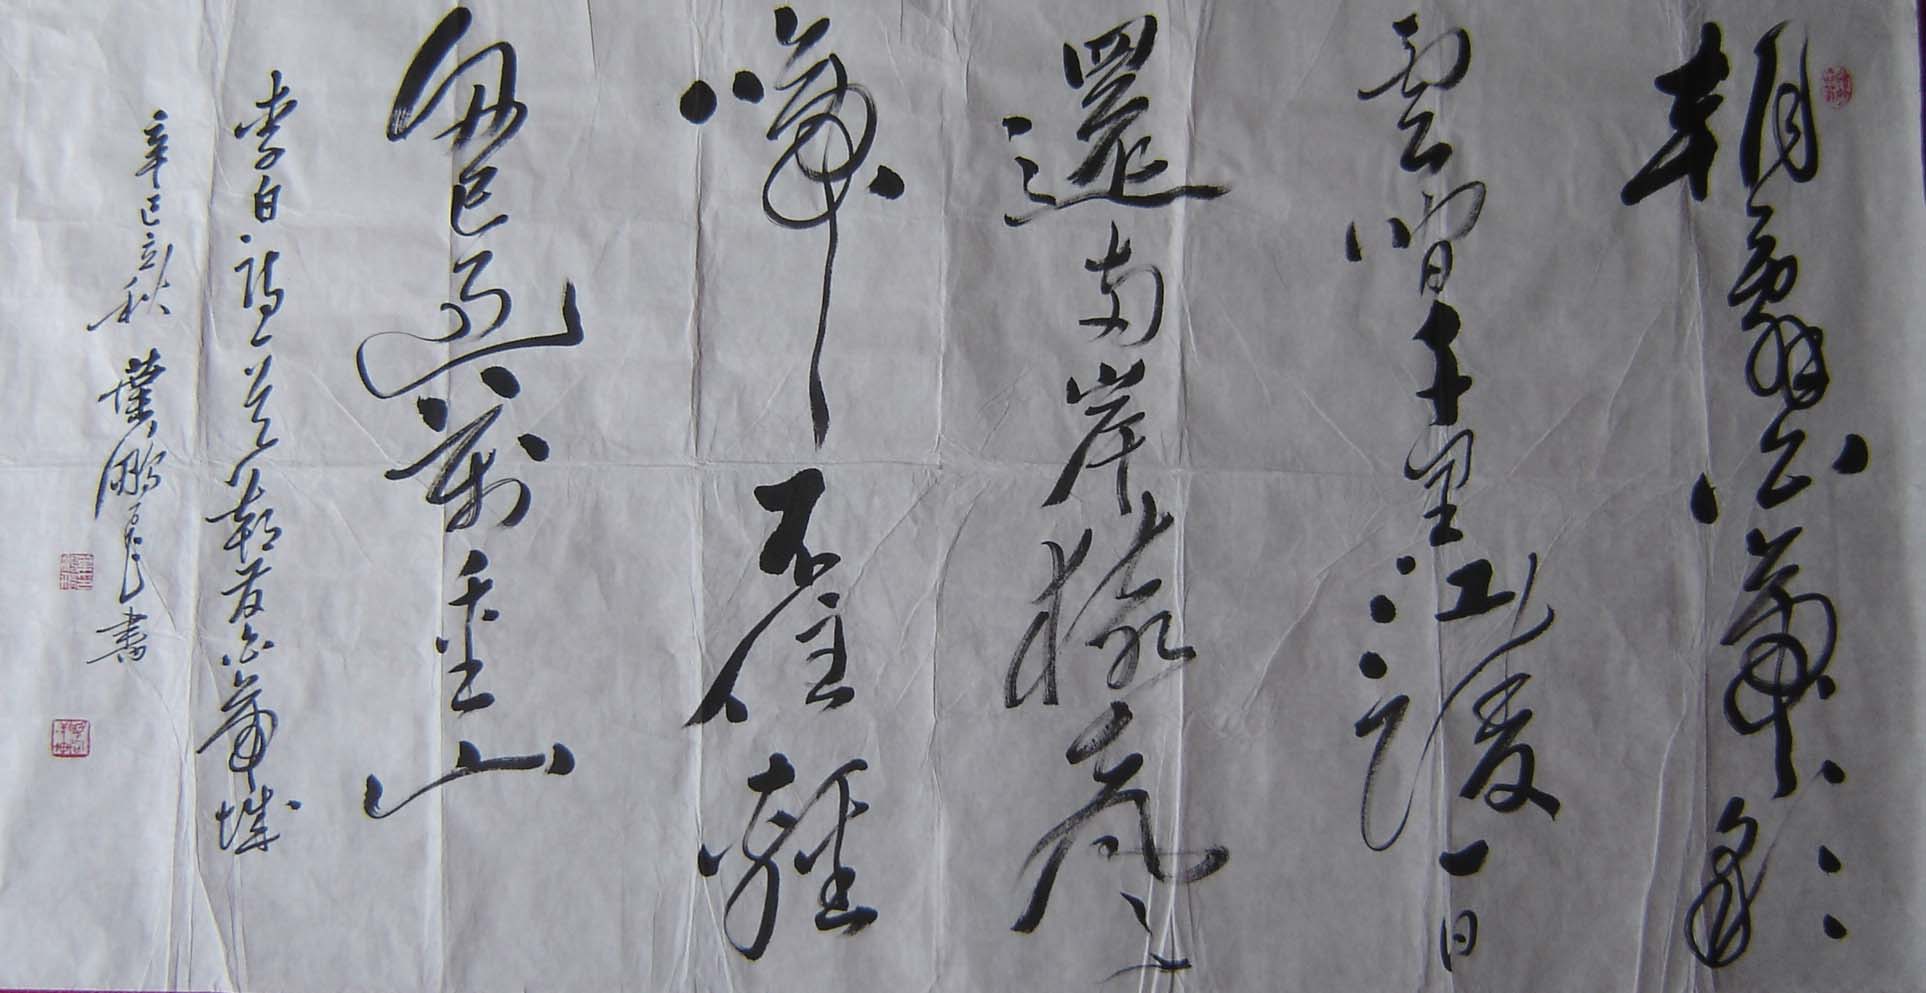 朝辭白帝彩
雲間千里江陵一日
還兩岸猿聲
啼不住輕
舟已過萬重山
李白詩一首朝發白帝城
辛巳立秋 葉鵬飛書